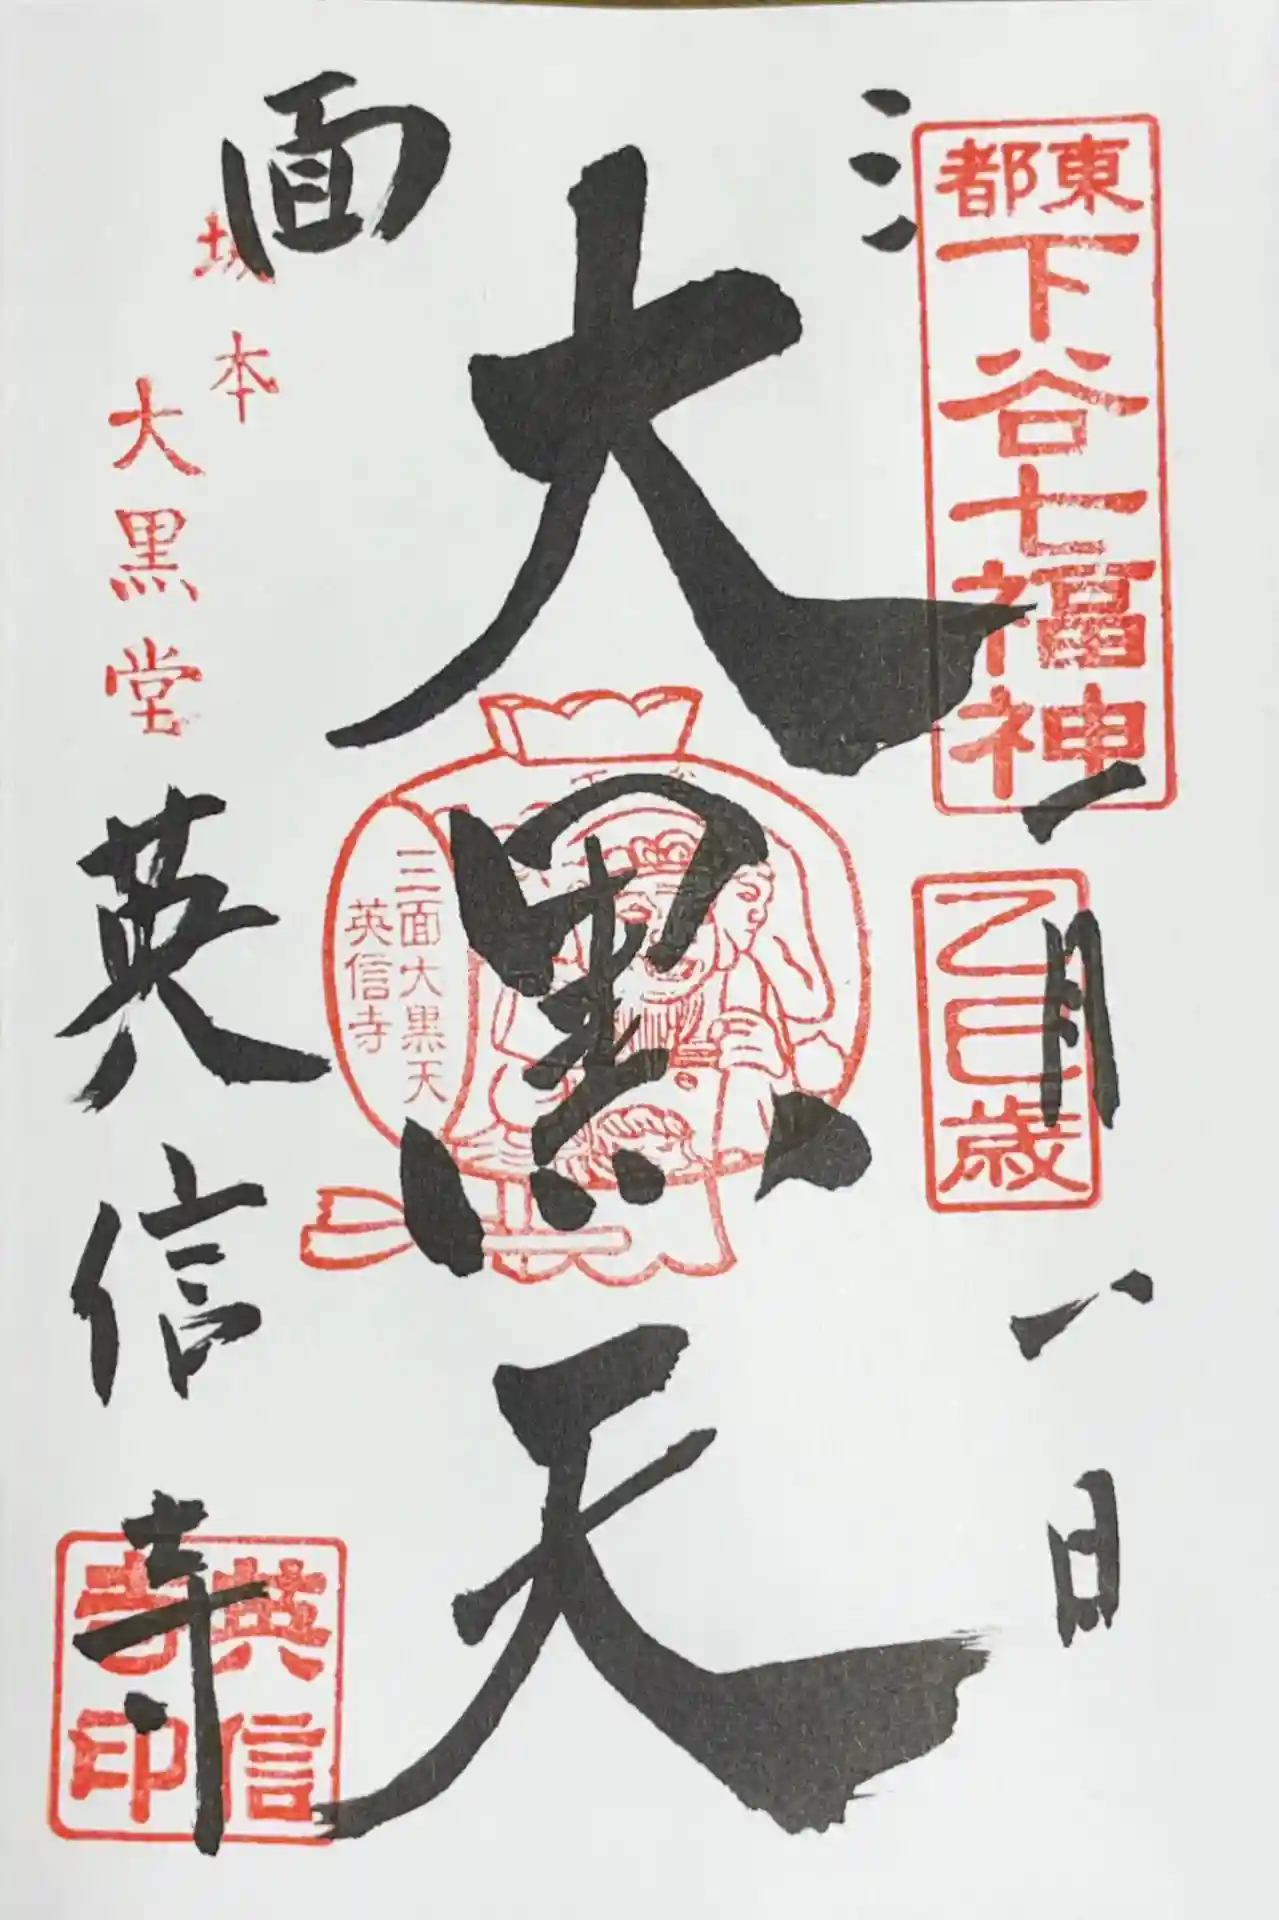 東都
下谷七福神
乙巳歳
一月八日
三
面
大黒天
三面大黒天
英信寺
坂本
大黒堂
英信寺
英信寺印